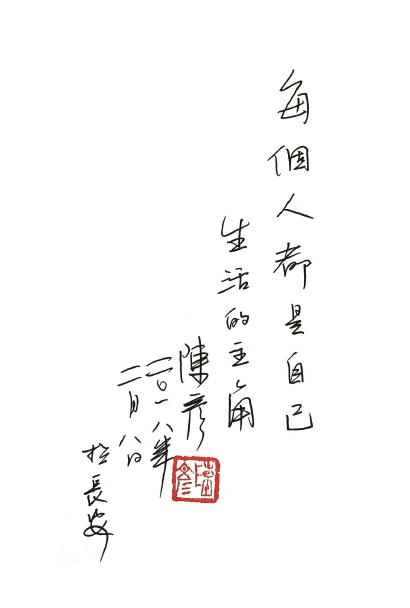 每個人都是自己
生活的主角
陳彥
二〇一八年
二月八日
於長安
陳彥